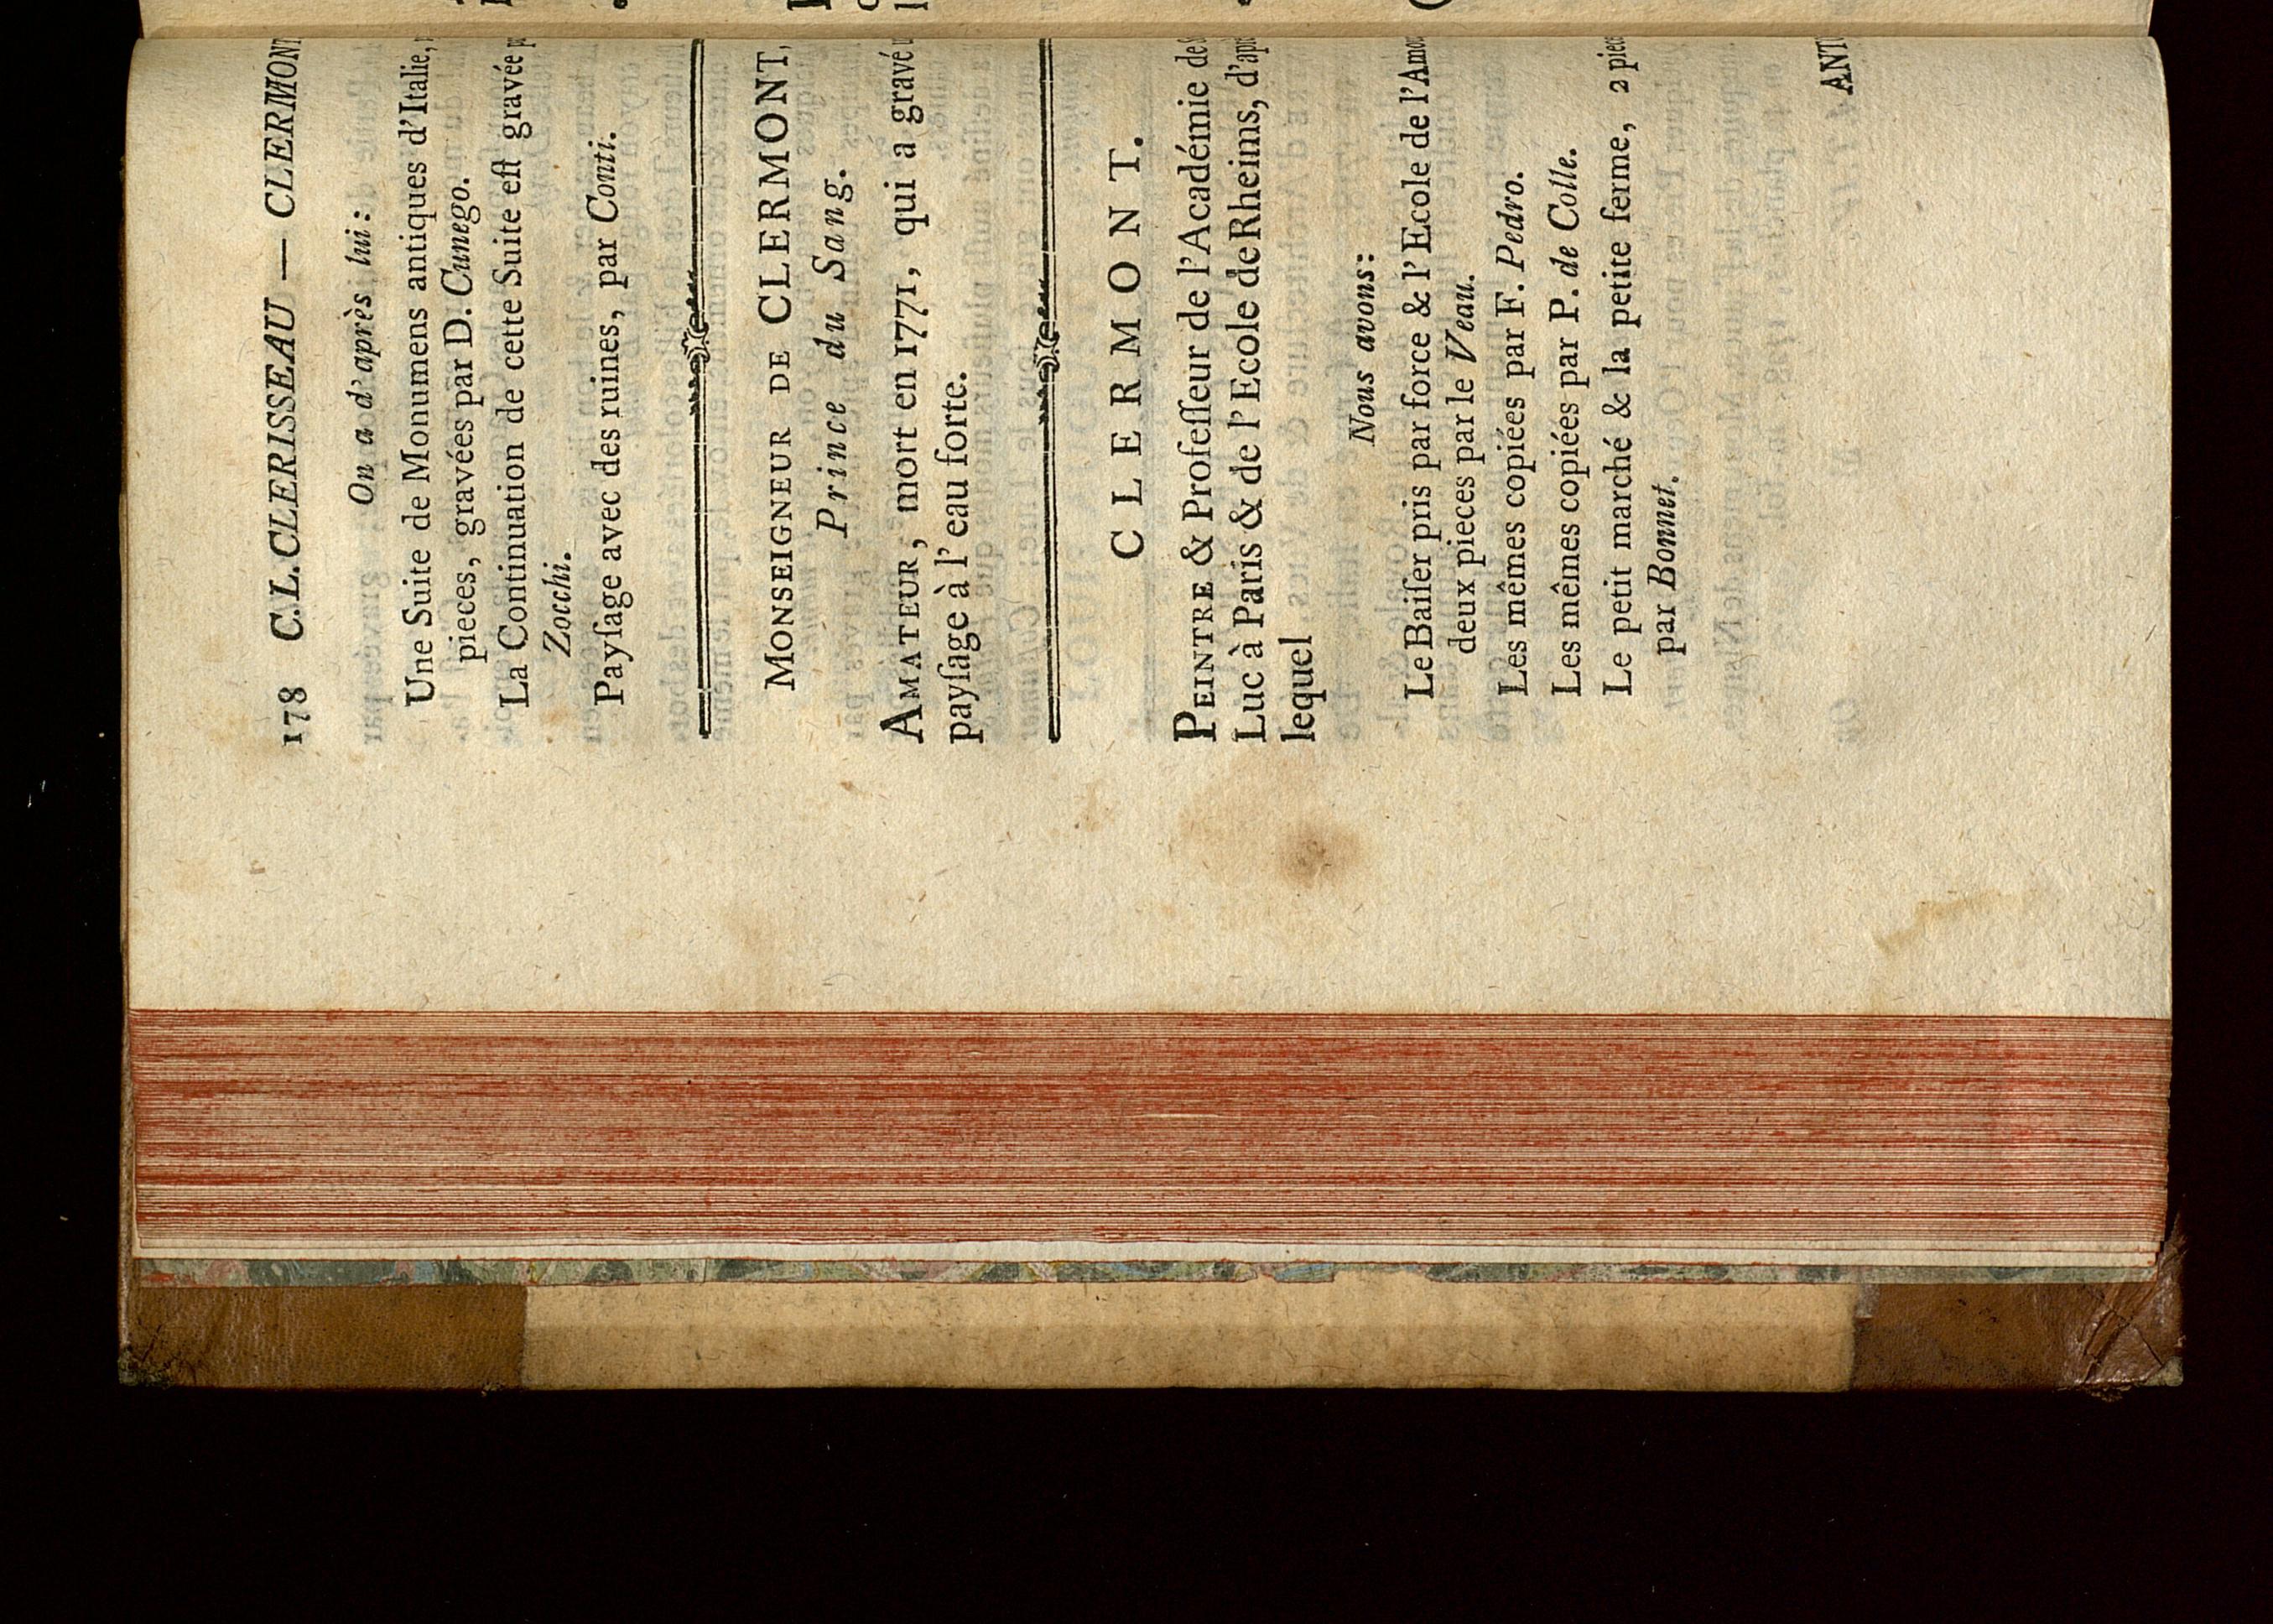 178 C.L. CLERISSEAU — CLERMONT
On a d'après lui:
Une Suite de Monumens antiques d'Italie,
pieces, gravées par D. Cunego.
La Continuation de cette Suite eſt gravée
Zocchi.
Payſage avec des ruines, par Conti.
MONSEIGNEUR DE CLERMONT,
Prince du Sang.
AMATEUR, mort en 1771, qui a gravé
payſage à l'eau forte.
CLERMONT.
PEINTRE & Profeſſeur de l'Académie de
Luc à Paris & de l'Ecole de Rheims, d'apr
lequel
Nous avons:
Le Baiſer pris par force & l'Ecole de l'Amou
deux pieces par le Veau.
Les mêmes copiées par F. Pedro.
Les mêmes copiées par P. de Colle.
Le petit marché & la petite ferme, 2 piece
par Bonnet.
ANT